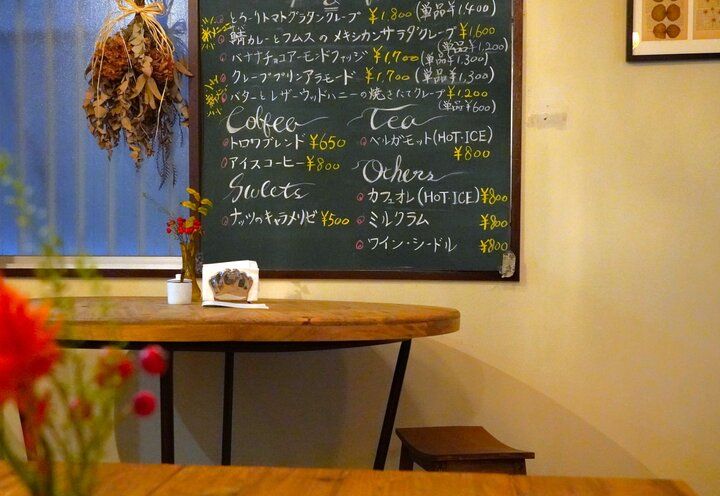 とろ〜りトマトグラタンクレープ ¥1,800 (単品¥1,400)
鯖カレーとフムスのメキシカンサラダクレープ ¥1,600
(単品¥1,200)
バナナチョコアーモンドファッジ ¥1,700 (単品¥1,300)
クレーププリンアラモード ¥1,700 (単品¥1,300)
バターとレザーウッドハニーの焼きたてクレープ ¥1,200
(単品¥600)
Coffee
トロワブレンド ¥650
アイスコーヒー ¥800
Sweets
ナッツのキャラメリゼ ¥500
Tea
ベルガモット(HOT・ICE)
¥800
Others
カフェオレ(HOT・ICE) ¥800
ミルクラム ¥800
ワイン・シードル ¥800